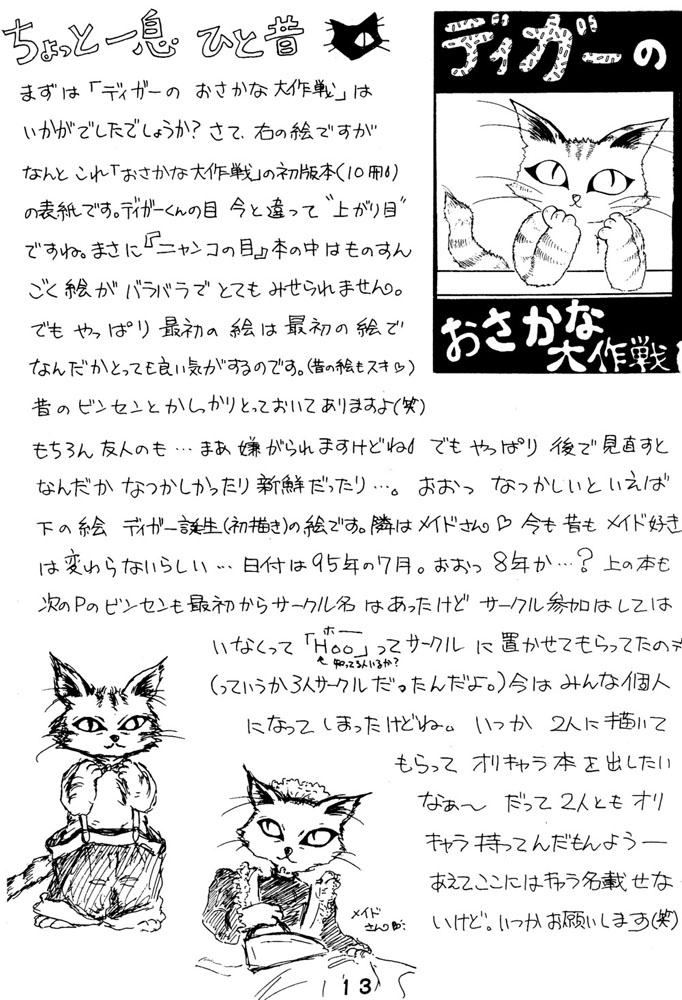 ちょっと一息 ひと昔
まずは「ディガーの おさかな大作戦」は
いかがでしたでしょうか? さて、右の絵ですが
なんと これ「おさかな大作戦」の初版本(10冊)
の表紙です。ディガーくんの目 今と違って“上がり目”
ですね。まさに『ニャンコの目』本の中はものすん
ごく絵が バラバラで とても みせられません。
でも やっぱり 最初の 絵は 最初の 絵で
なんだかとっても良い気がするのです。(昔の絵もスキ♡)
昔のビンセンとかしっかりとっておいてありますよ(笑)
もちろん 友人のも…まあ 嫌がられますけどね でも やっぱり 後で 見直すと
なんだか なつかしかったり 新鮮だったり…。 おおっ なつかしいと いえば
下の絵 ディガー誕生(初描き)の絵です。隣はメイドさん♡ 今も昔も メイド好き
は変わらないらしい… 日付は95年の7月。おおっ 8年か…? 上の本も
次のPのビンセンも最初からサークル名 はあったけど サークル参加はしては
いなくって「Hoo」ってサークル に置かせてもらってたの
ホー
↑知ってる人いるか?
(っていうか3人サークルだったんだよ。)今は みんな個人
になって しまったけどね。 いつか 2人に描いて
もらって オリキャラ本 を出したい
なぁ〜 だって 2人とも オリ
キャラ 持ってんだもんよう—
あえてここには キャラ名載せな
いけど。いつか お願いします(笑)
ディガーの
おさかな
大作戦
メイド
さん
13